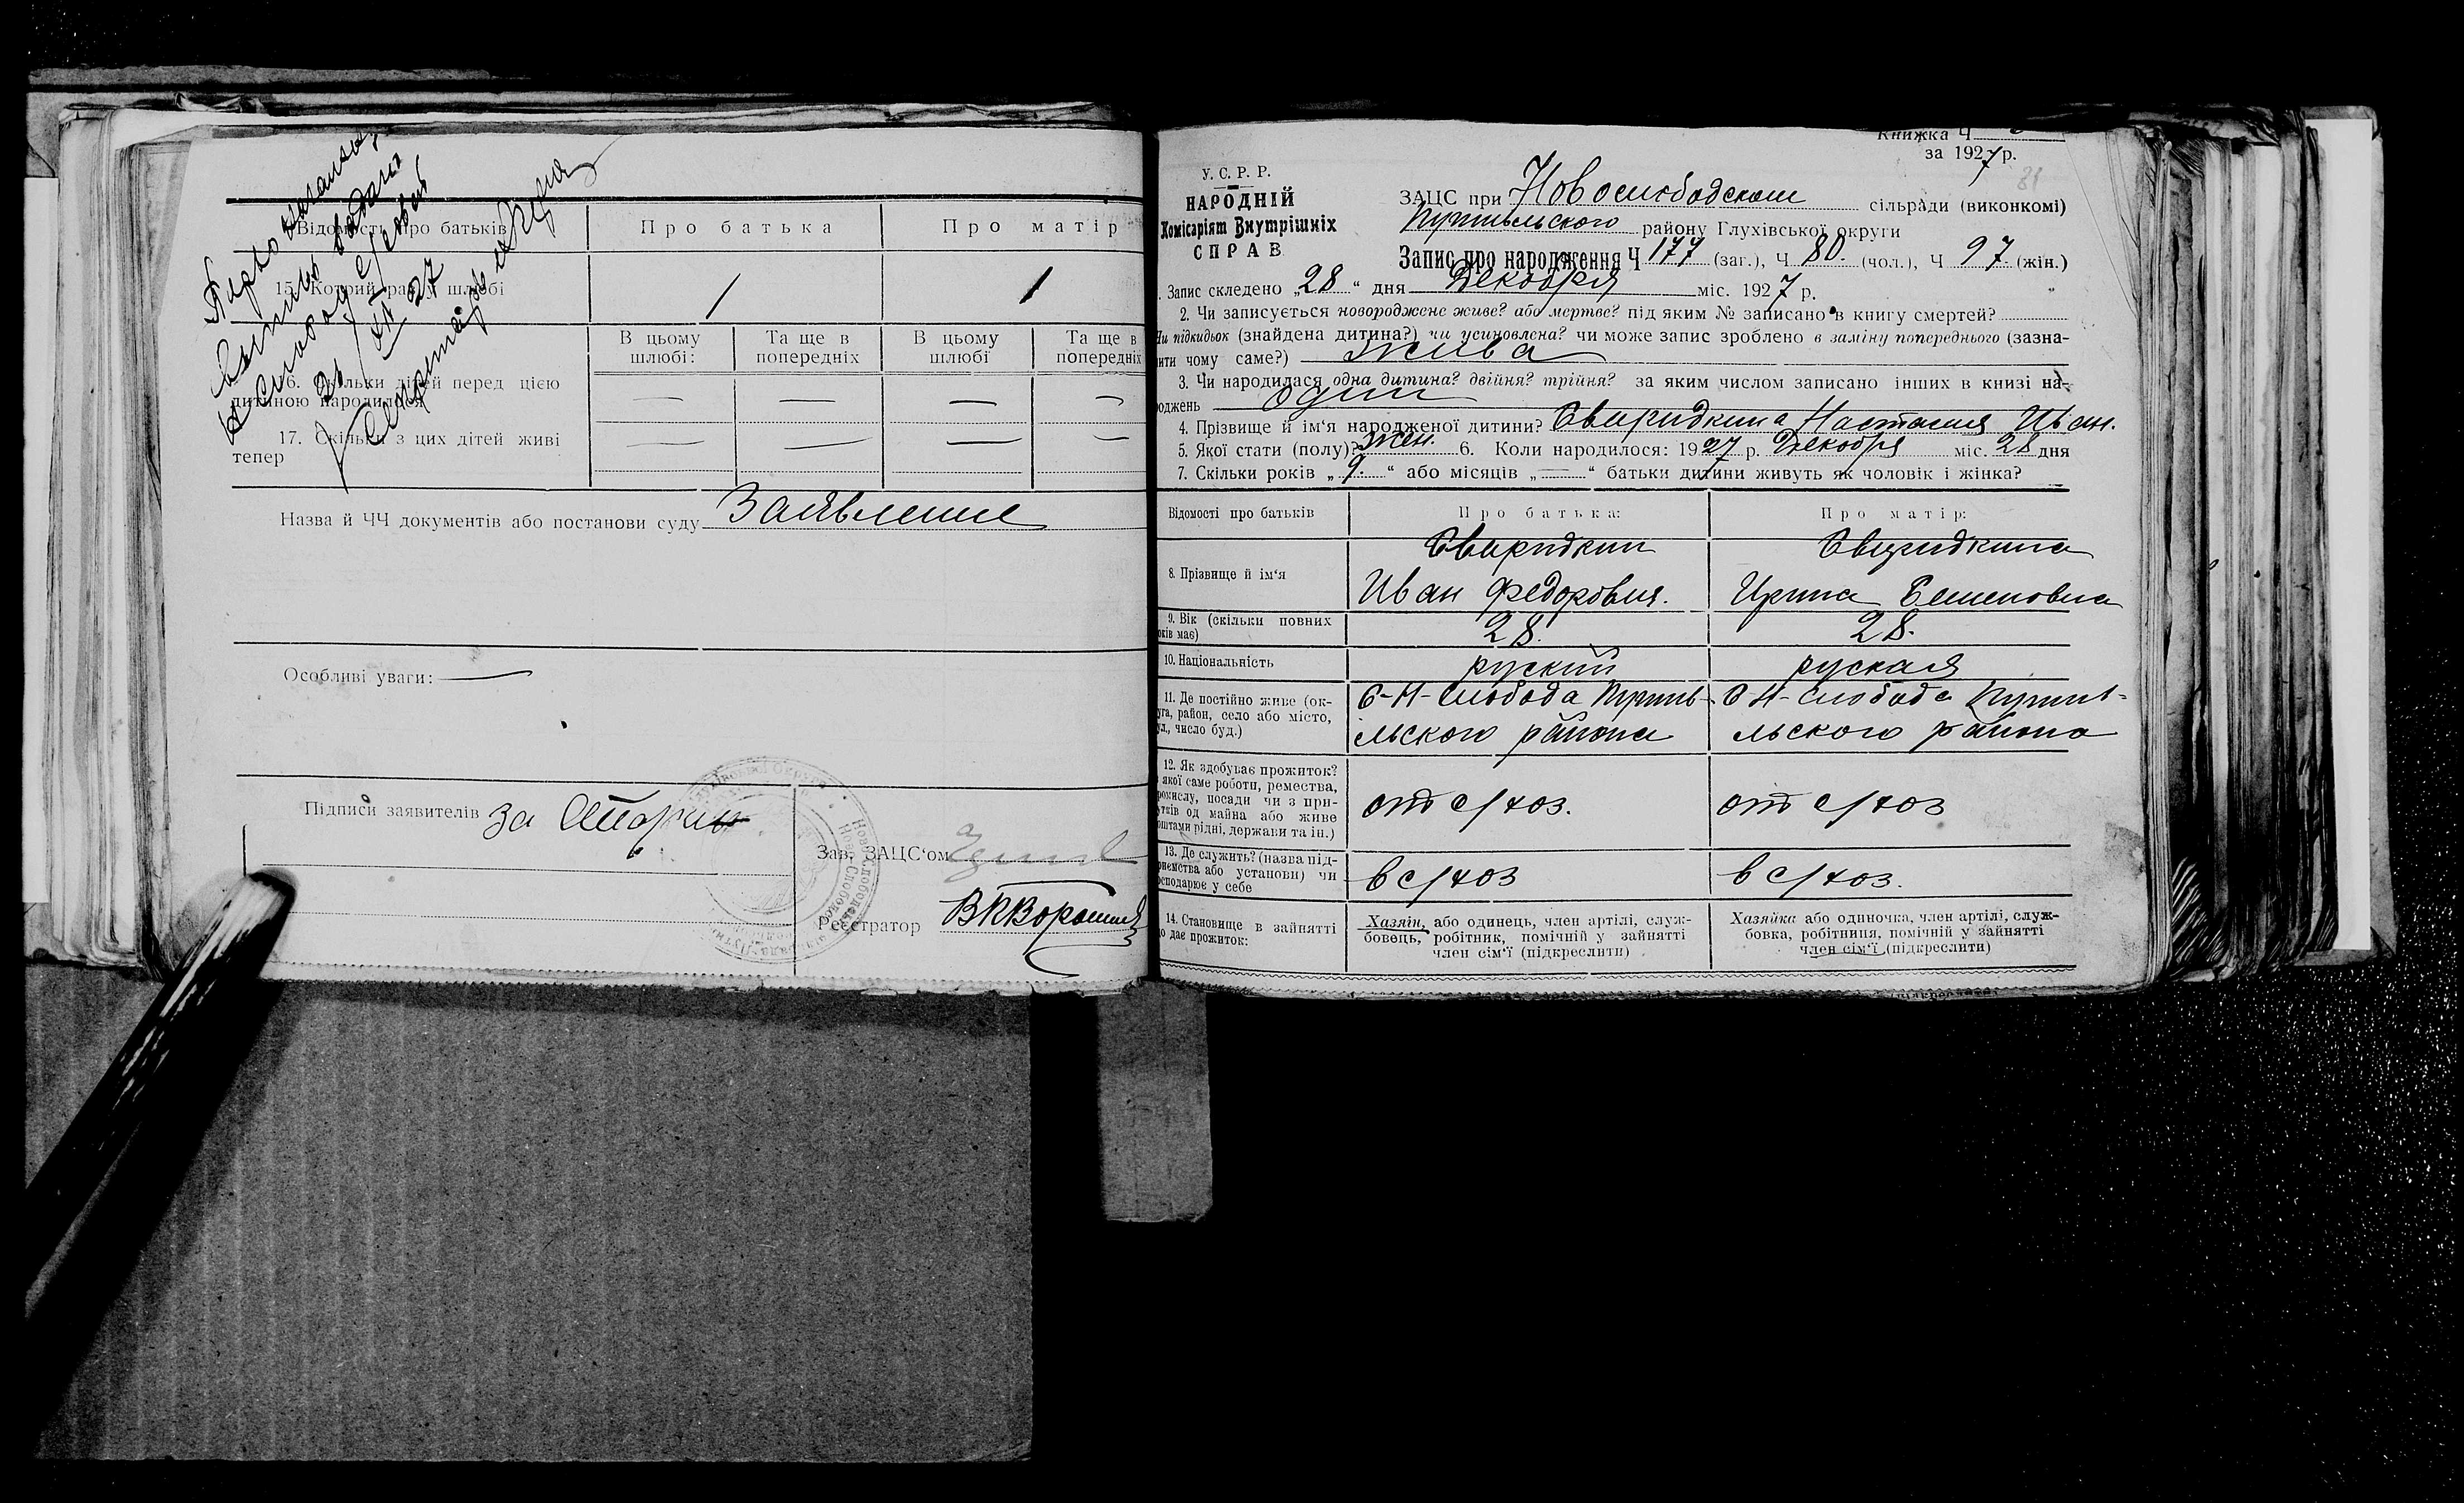 Відомость про батьків
Про батька
Про матір
15. Котрий раз у шлюбі
В цьому шлюбі:
Та ще в попередніх
В цьому шлюбі
Та ще в попередніх
16. Скільки дітей перед цією дитиною народилося
17. Скільки з цих дітей живі тепер
27
Назва й ЧЧ документів або постанови суду Заявление
Особливі уваги:
Підписи заявителів за
Зав. ЗАЦС'ом
Реєстратор
Книжка Ч
за 1927 р.
81
У. С. Р. Р.
НАРОДНІЙ
Комісаріят Внутрішніх
СПРАВ
ЗАЦС при Новослободском сільради (виконкомі)
Путивльского району Глухівської округи
Запис про народження Ч 177 (заг.), Ч 80. (чол.), Ч 97. (жін.)
1. Запис складено „28“ дня Декабря міс. 1927 р.
2. Чи записується новороджене живе? або мертве? під яким № записано в книгу смертей?
Чи підкидьок (знайдена дитина?) чи усиновлена? чи може запис зроблено в заміну попереднього (зазна-
чити чому саме?) жива
3. Чи народилася одна дитина? двійня? трійня? за яким числом записано інших в книзі на-
роджень один
4. Прізвище й ім'я народженої дитини? Свиридкина Настасия Иван.
5. Якої стати (полу)? жен. 6. Коли народилося: 1927 р. Декабря міс. 28 дня
7. Скільки років „9.“ або місяців „—“ батьки дитини живуть як чоловік і жінка?
Відомості про батьків
Про батька:
Про матір:
8. Прізвище й ім'я
Свиридкин
Иван Федорович.
Свиридкина
Ирина Семеновна
9. Вік (скільки повних
років має)
28.
28.
10. Національність
руский
руская
11. Де постійно живе (ок-
руга, район, село або місто,
вул., число буд.)
С-Н-Слобода Путив-
льского района
С Н-Слобода Путив-
льского района
12. Як здобуває прожиток?
з якої саме роботи, ремества,
промислу, посади чи з при-
бутків од майна або живе
коштами рідні, держави та ін.)
от с/хоз.
от с/хоз
13. Де служить? (назва під-
приємства або установи) чи
господарює у себе
в с/хоз
в с/хоз.
14. Становище в зайнятті
що дає прожиток:
Хазяїн, або одинець, член артілі, служ-
бовець, робітник, помічній у зайнятті
член сім'ї (підкреслити)
Хазяйка або одиночка, член артілі, служ-
бовка, робітниця, помічній у зайнятті
член сім'ї (підкреслити)